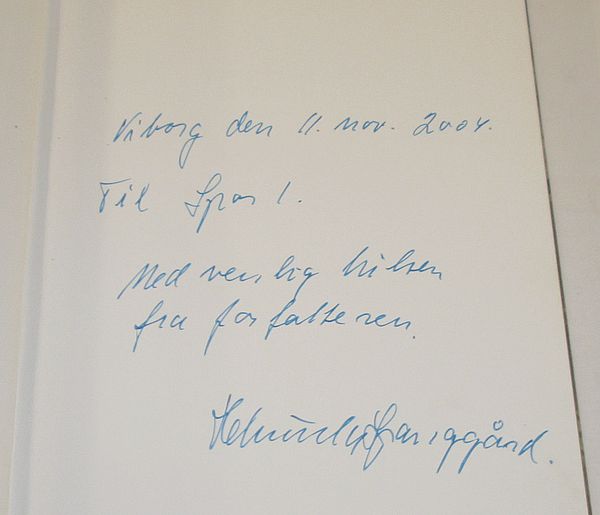 Viborg den 11. nov. 2004.
Til Spar 1.
Med venlig hilsen
fra forfatteren.